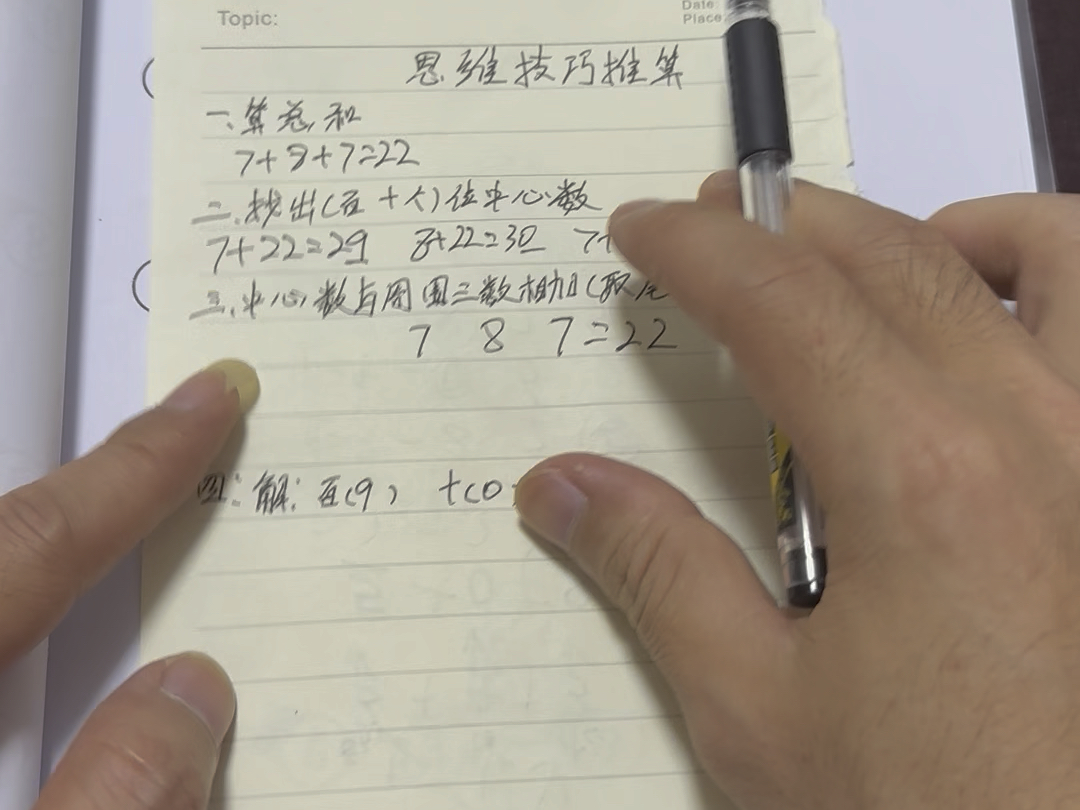 Topic:
Date:
Place
思维技巧推算
一、算总和
7+8+7=22
二、找出(百十个)位中心数
7+22=29 8+22=30 7+
三、中心数与周围三数相加(取尾
7 8 7=22
图:解:百(9) 十(0